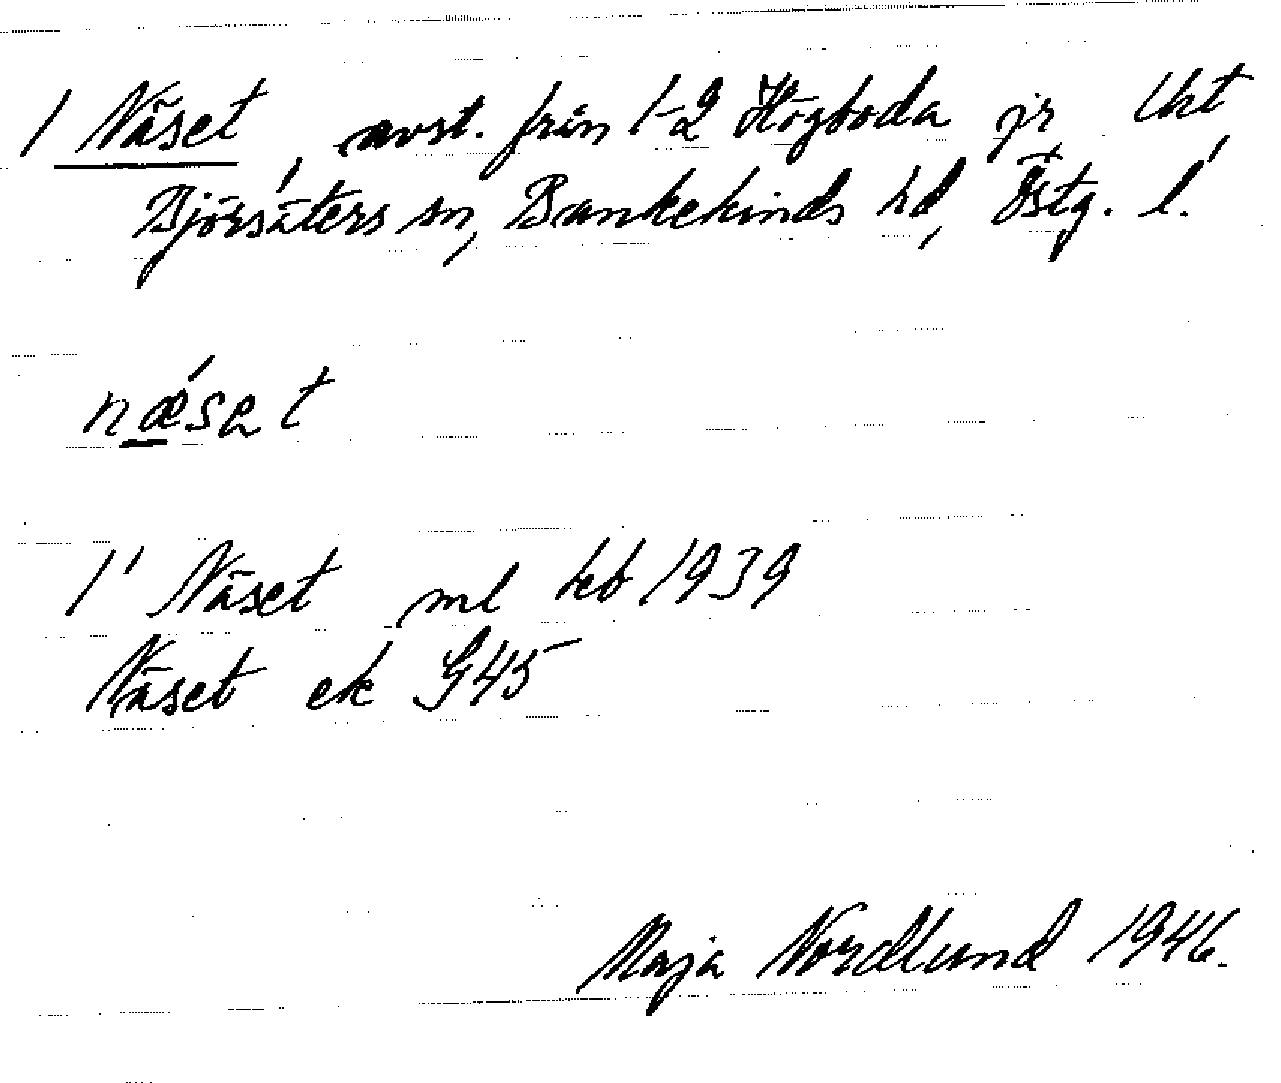 1 Näset, avst. från 1-2 Högboda jr lht
Björsäters sn, Bankekinds hd, Östg. l.
næ´set
1' Näset ml kb 1939
Näset ek G45
Maja Nordlund 1946.